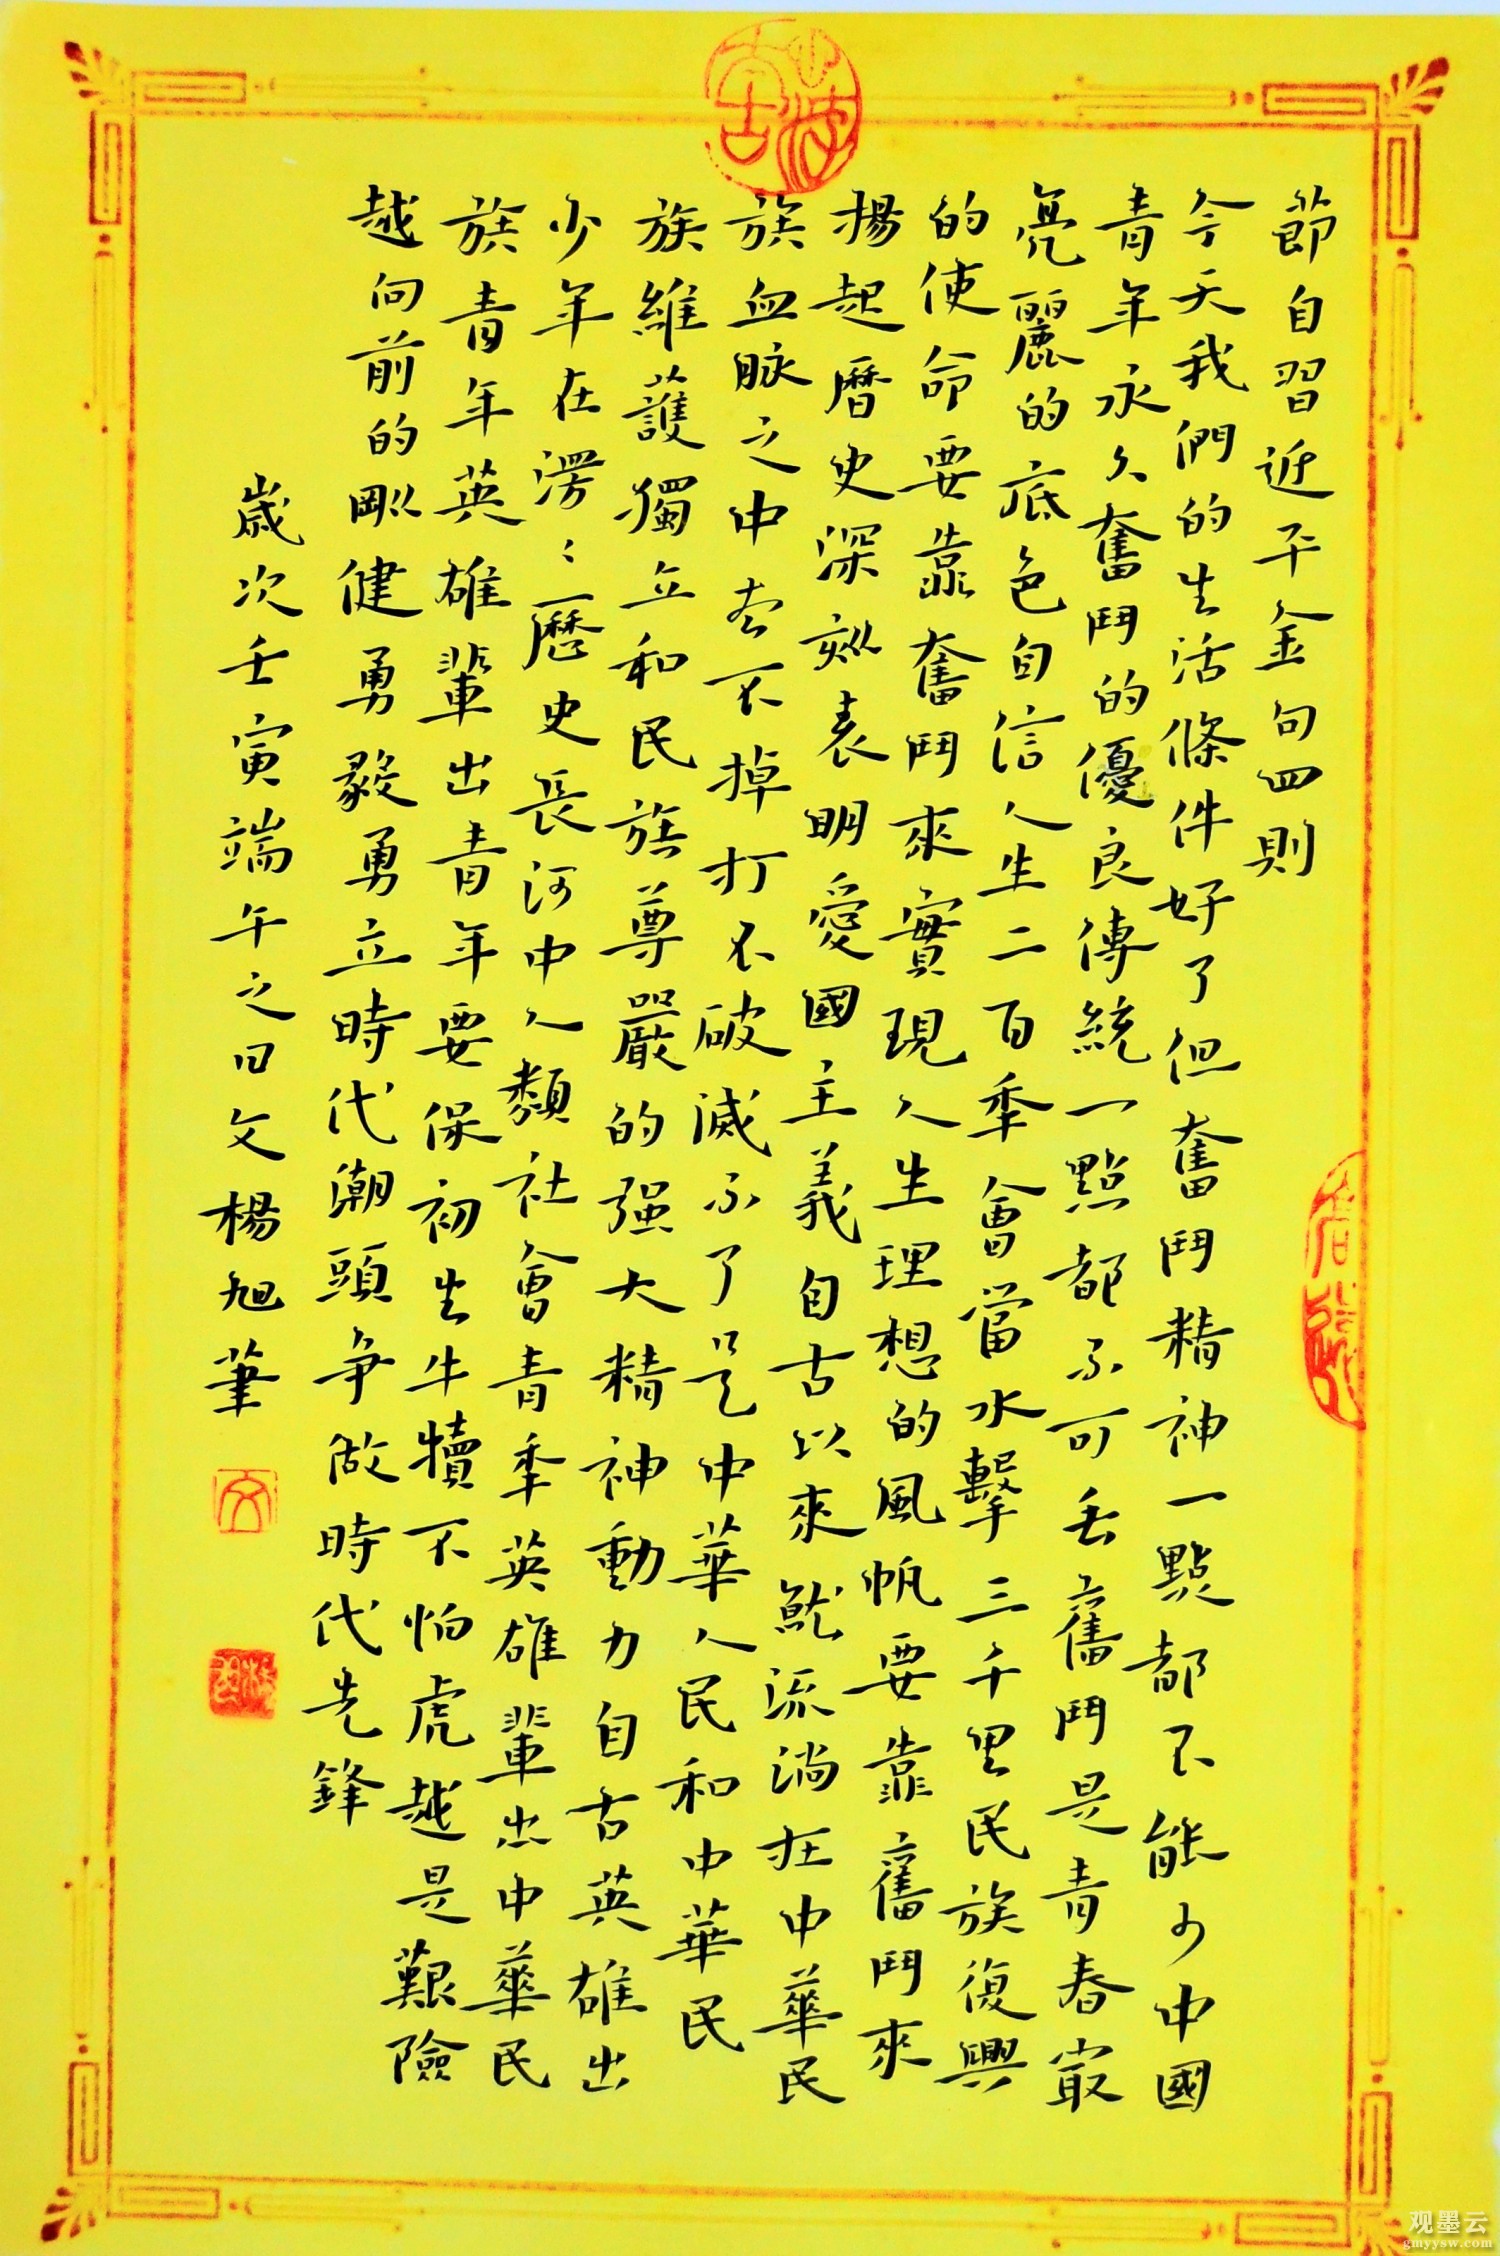 節自習近平金句四則
今天我們的生活條件好了但奮鬥精神一點都不能少中國
青年永久奮鬥的優良傳統一點都不可丢奮鬥是青春最
亮麗的底色自信人生二百年會當水擊三千里民族復興
的使命要靠奮鬥來實現人生理想的風帆要靠奮鬥來
揚起曆史深刻表明愛國主義自古以來就流淌在中華民
族血脉之中去不掉打不破滅不了是中華人民和中華民
族維護獨立和民族尊嚴的强大精神動力自古英雄出
少年在漫漫曆史長河中人類社會青年英雄輩出中華民
族青年英雄輩出青年要保初生牛犢不怕虎越是艱險
越向前的剛健勇毅勇立時代潮頭争做時代先鋒
歲次壬寅端午之日文楊旭筆
观墨云
gmyysw.com